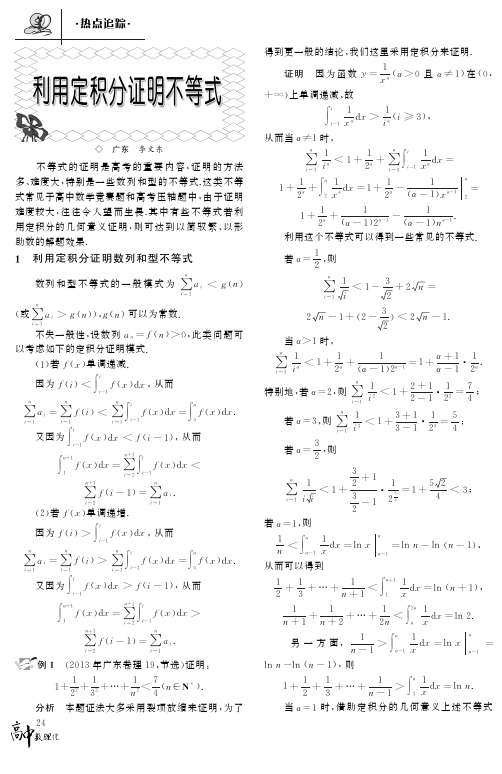 ·热点追踪·
利用定积分证明不等式
◇ 广东 李文东
不等式的证明是高考的重要内容,证明的方法
多、难度大,特别是一些数列和型的不等式.这类不等
式常见于高中数学竞赛题和高考压轴题中,由于证明
难度较大,往往令人望而生畏.其中有些不等式若利
用定积分的几何意义证明,则可达到以简驭繁、以形
助数的解题效果.
1 利用定积分证明数列和型不等式
数列和型不等式的一般模式为 ∑_{i=1}^{n} a_i < g(n)
(或 ∑_{i=1}^{n} a_i > g(n)),g(n) 可以为常数.
不失一般性,设数列 a_n=f(n)>0,此类问题可
以考虑如下的定积分证明模式.
(1)若 f(x)单调递减.
因为 f(i) < ∫_{i-1}^{i} f(x)dx,从而
∑_{i=1}^{n} a_i = ∑_{i=1}^{n} f(i) < ∑_{i=1}^{n} ∫_{i-1}^{i} f(x)dx = ∫_{0}^{n} f(x)dx.
又因为 ∫_{i-1}^{i} f(x)dx < f(i-1),从而
∫_{1}^{n+1} f(x)dx = ∑_{i=2}^{n+1} ∫_{i-1}^{i} f(x)dx <
∑_{i=2}^{n+1} f(i-1) = ∑_{i=1}^{n} a_i.
(2)若 f(x)单调递增.
因为 f(i) > ∫_{i-1}^{i} f(x)dx,从而
∑_{i=1}^{n} a_i = ∑_{i=1}^{n} f(i) > ∑_{i=1}^{n} ∫_{i-1}^{i} f(x)dx = ∫_{0}^{n} f(x)dx.
又因为 ∫_{i-1}^{i} f(x)dx > f(i-1),从而
∫_{1}^{n+1} f(x)dx = ∑_{i=2}^{n+1} ∫_{i-1}^{i} f(x)dx >
∑_{i=2}^{n+1} f(i-1) = ∑_{i=1}^{n} a_i.
例1 (2013年广东卷理19,节选)证明:
1+1/2²+1/3²+…+1/n²<7/4(n∈N*).
分析 本题证法大多采用裂项放缩来证明,为了
得到更一般的结论,我们这里采用定积分来证明.
证明 因为函数 y=1/x^α (α>0 且 α≠1)在(0,
+∞)上单调递减,故
∫_{i-1}^{i} 1/x^α dx > 1/i^α (i≥3),
从而当 α≠1时,
∑_{i=1}^{n} 1/i^α < 1+1/2^α+∑_{i=3}^{n} ∫_{i-1}^{i} 1/x^α dx =
1+1/2^α+∫_{2}^{n} 1/x^α dx=1+1/2^α-1/((α-1)x^{α-1})|_{2}^{n} =
1+1/2^α+1/((α-1)2^{α-1})-1/((α-1)n^{α-1}).
利用这个不等式可以得到一些常见的不等式.
若 α=1/2,则
∑_{i=1}^{n} 1/√i < 1-3/√2+2√n=
2√n-1+(2-3/√2)<2√n-1.
当 α>1时,
∑_{i=1}^{n} 1/i^α < 1+1/2^α+1/((α-1)2^{α-1})=1+(α+1)/(α-1)·1/2^α.
特别地,若 α=2,则 ∑_{i=1}^{n} 1/i² < 1+(2+1)/(2-1)·1/2²=7/4;
若 α=3,则 ∑_{i=1}^{n} 1/i³ < 1+(3+1)/(3-1)·1/2³=5/4;
若 α=3/2,则
∑_{i=1}^{n} 1/(i√i) < 1+(3/2+1)/(3/2-1)·1/2^{3/2}=1+5√2/4<3;
若 α=1,则
1/n < ∫_{n-1}^{n} 1/x dx=ln x|_{n-1}^{n}=ln n-ln (n-1),
从而可以得到
1/2+1/3+…+1/(n+1) < ∫_{1}^{n+1} 1/x dx=ln(n+1),
1/(n+1)+1/(n+2)+…+1/2n < ∫_{n}^{2n} 1/x dx=ln 2.
另一方面, 1/(n-1) > ∫_{n-1}^{n} 1/x dx=ln x|_{n-1}^{n} =
ln n-ln (n-1),则
1+1/2+1/3+…+1/(n-1) > ∫_{1}^{n} 1/x dx=ln n.
当 α=1 时,借助定积分的几何意义上述不等式
24
高中数理化